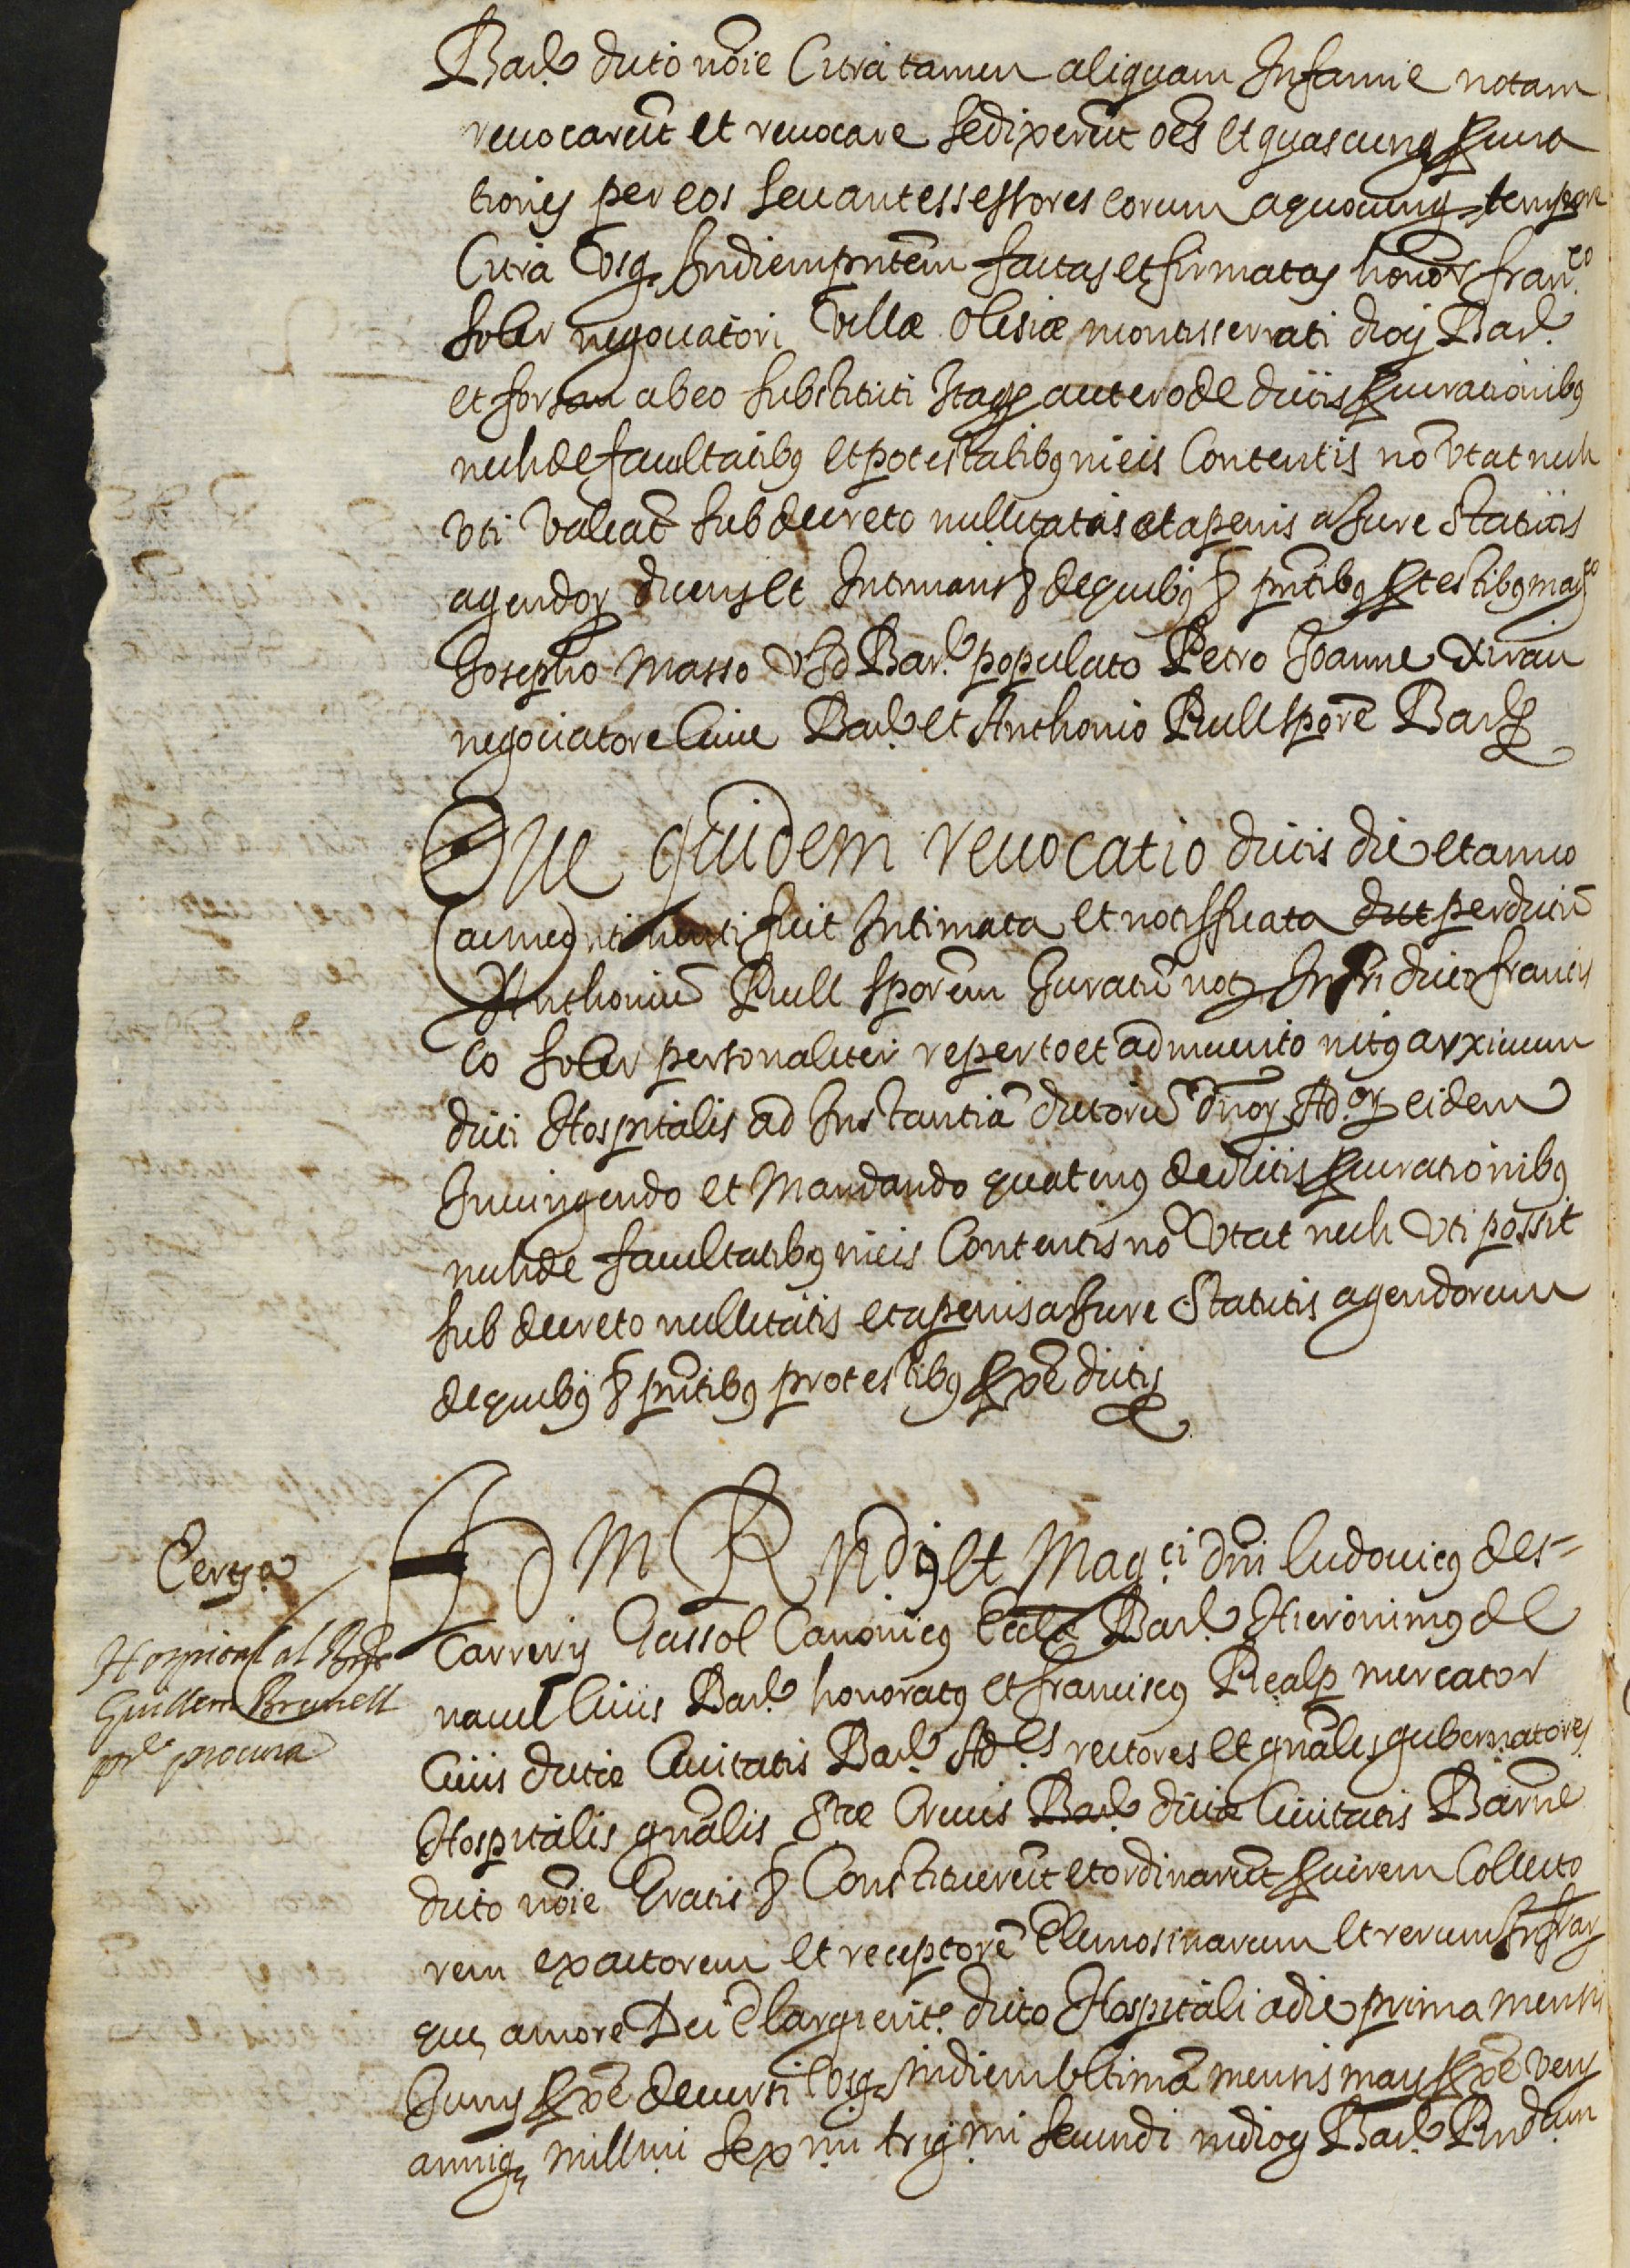 Bar.e dicto noîe Citra tamen aliquam Infamie notam
reuocarût et reuocare se dixerût oês et quascunq. procura
tiones per eos seu antessessores eorum a quocunq. tempore
Citra Vsq. In diem pntêm factas et firmatas honor. fran.co
soler negociatori Villæ olesiæ montisserrati dioc. Bar.e
et forsan ab eo substituti Itaqe. autero de dictis procurationibq
nec de facultatibq et potestatibq in eis Contentis nô Vtat. nech
Vti Valeat sub decreto nullitatis et a penis a Jure Statutis
agendor. dicens et Intimans & de quibq & pntîbq pro testibq mag.co
Josepho Masso VJD Bar.e populato Petro Joanne Xirau
negociatore Ciue Bar.e et Anthonio Rull sporê Bar.e
Que quidem reuocatio dictis die et anno
(a me) fuit Intimata et notifficata per dictû
Anthoniû Rull sporêm Juratû not. Infri dicto francis
co soler personaliter reperto et adinuento intq arxiuum
dicti Hospitalis ad Instantiâ dictorû dnor. Ad.or. eidem
Iniungendo et Mandando quatenq de dictis procurationibq
nech de facultatibq in eis Contentis nô Vtat. nech Vti possit
sub decreto nullitatis et a penis a Jure Statutis agendorum
de quibq & pntîbq pro testibq proxê dictis
Certa
Hospital al
Guillem Brunell
pr.e procura
J D M R Ndq et Mag.ci dnî ludouicq des=
Carrerq Gassol Canonicq Eccle Bar.e Hieronimq de
nauel Ciuis Bar.e honoratq et franciscq Realp mercator
Ciuis dicte Ciuitatis Bar.e Ad.es rectores et gnâles gubernatores
Hospitalis gnâlis Ste Crucis Bar.e dicte Ciuitatis Barñe
dicto noîe Gratis & Constituerût et ordinarût procûrem Collecto
rem exactorem et receptorê Elemosinarum et rerum Infrar.
que amore Dei Elargient.e dicto Hospitali a die prima mensis
Juny proxê decursi Vsq. in diem Vltimâ mensis may proxê Venj
anniq. millmi sexnni trigmi secundi in dioc. Bar.e